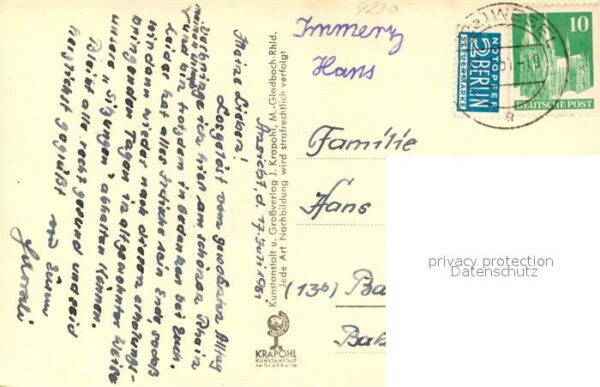 4230
Immerz
Hans
(22a) WESEL
51-19
a
10
DEUTSCHE POST
NOTOPFER
2 BERLIN
STEUERMARKE
Familie
Hans
(13b) Ba
Bah
privacy protection
Datenschutz
Kunstanstalt u. Großverlag J. Krapohl, M.-Gladbach-Rhld.
Jede Art Nachbildung wird strafrechtlich verfolgt
KRAPOHL
KUNSTANSTALT
M.GLADBACH
d. 7. Juli 1951
Meine Lieben!
Losgelöst vom gewohnten Alltag
verbringe ich hier am schönen Rhein
und bin trotzdem in Gedanken bei Euch.
Leider hat alles Irdische sein Ende, sodaß
wir dann wieder nach diesen erholungs-
bringenden Tagen in altgewohnter Weise
unsere "Sitzungen" abhalten können.
Bleibt alle recht gesund und seid
herzlichst gegrüßt von Eurem